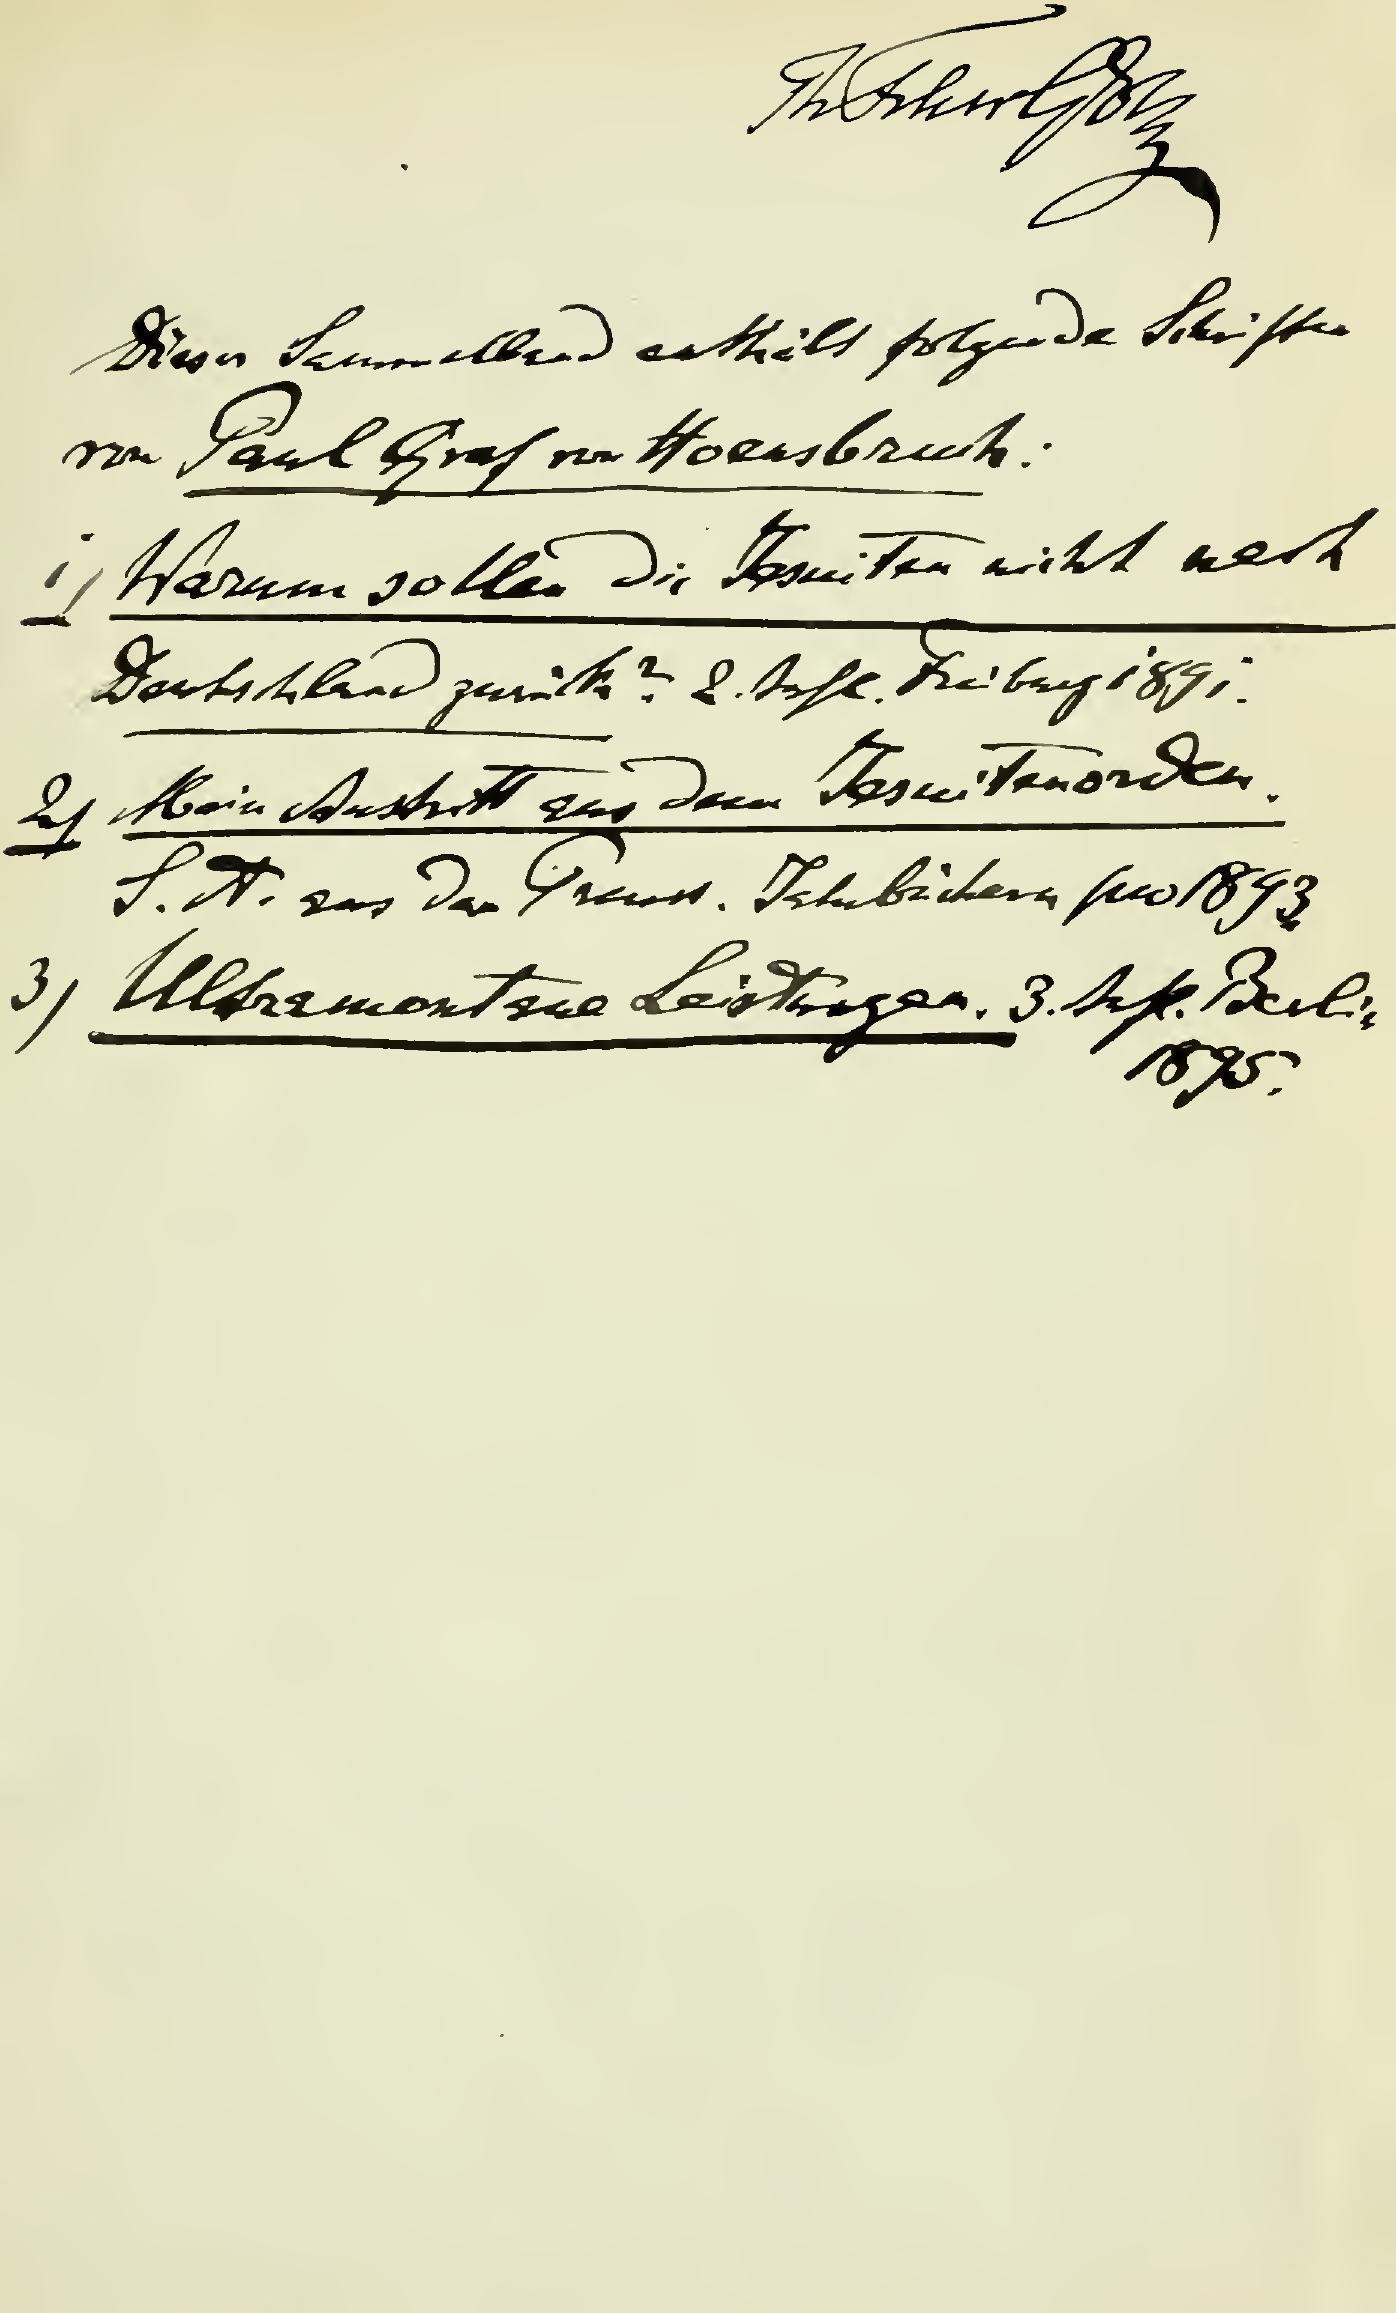 Dieser Sammelband enthält folgende Schriften
von Paul Graf von Hoensbruch:
1) Warum sollen die Jesuiten nicht nach
Deutschland zurück? 2. Aufl. Freiburg 1891.
2) Mein Austritt aus dem Jesuitenorden.
S. A. aus den Preuss. Jahrbüchern pro 1893
3) Ultramontane Leistungen. 3. Aufl. Berlin
1895.